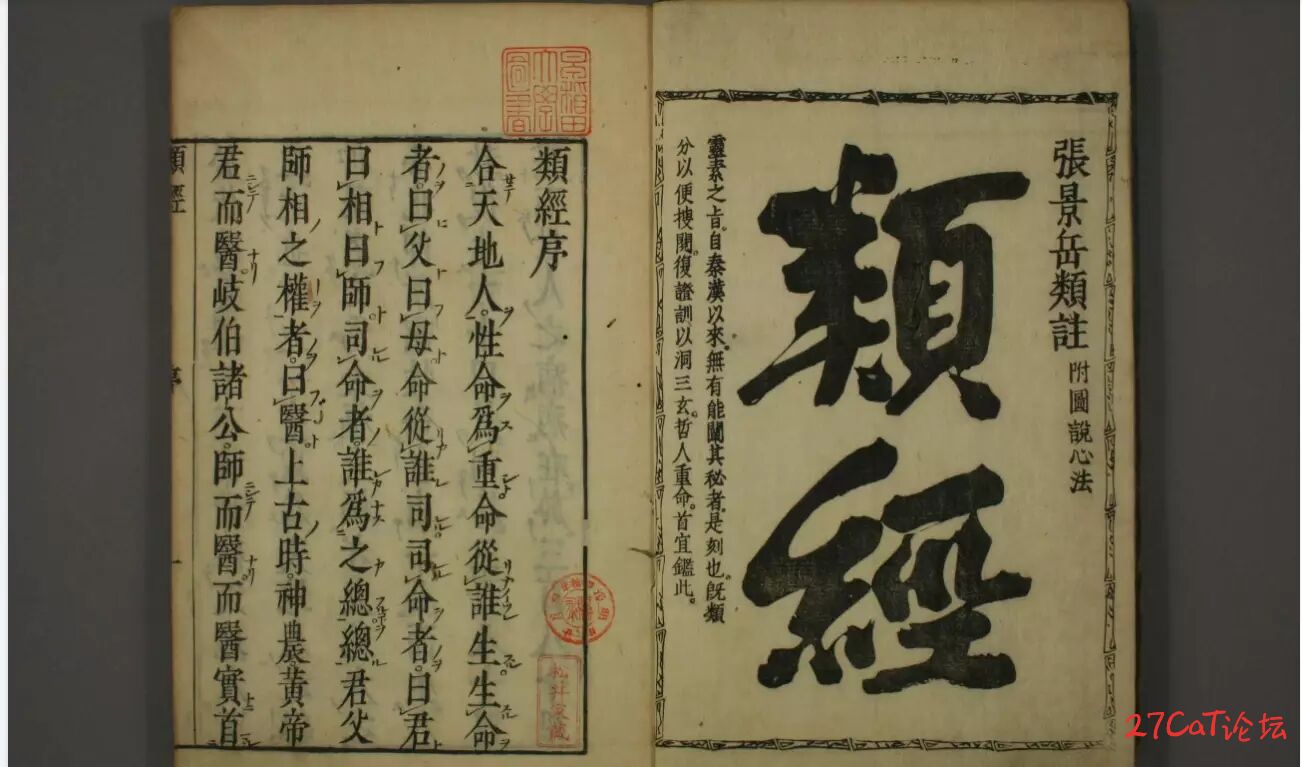 張景岳類註 附圖說心法
類經
靈素之旨。自秦漢以來。無有能闡其秘者。是刻也。既類
分以便搜閱。復證訓以洞三玄。哲人重命。首宜鑑此。
早稻田
大學
圖書
類經序
合天地人。性命爲重。命從誰生。生命
者。曰父曰母。命從誰司。司命者。曰君
曰相曰師。司命者。誰爲之總。總君父
師相之權者。曰醫。上古時。神農黃帝
君而醫。岐伯諸公。師而醫。而醫實首
類經 序 一
27CaT论坛